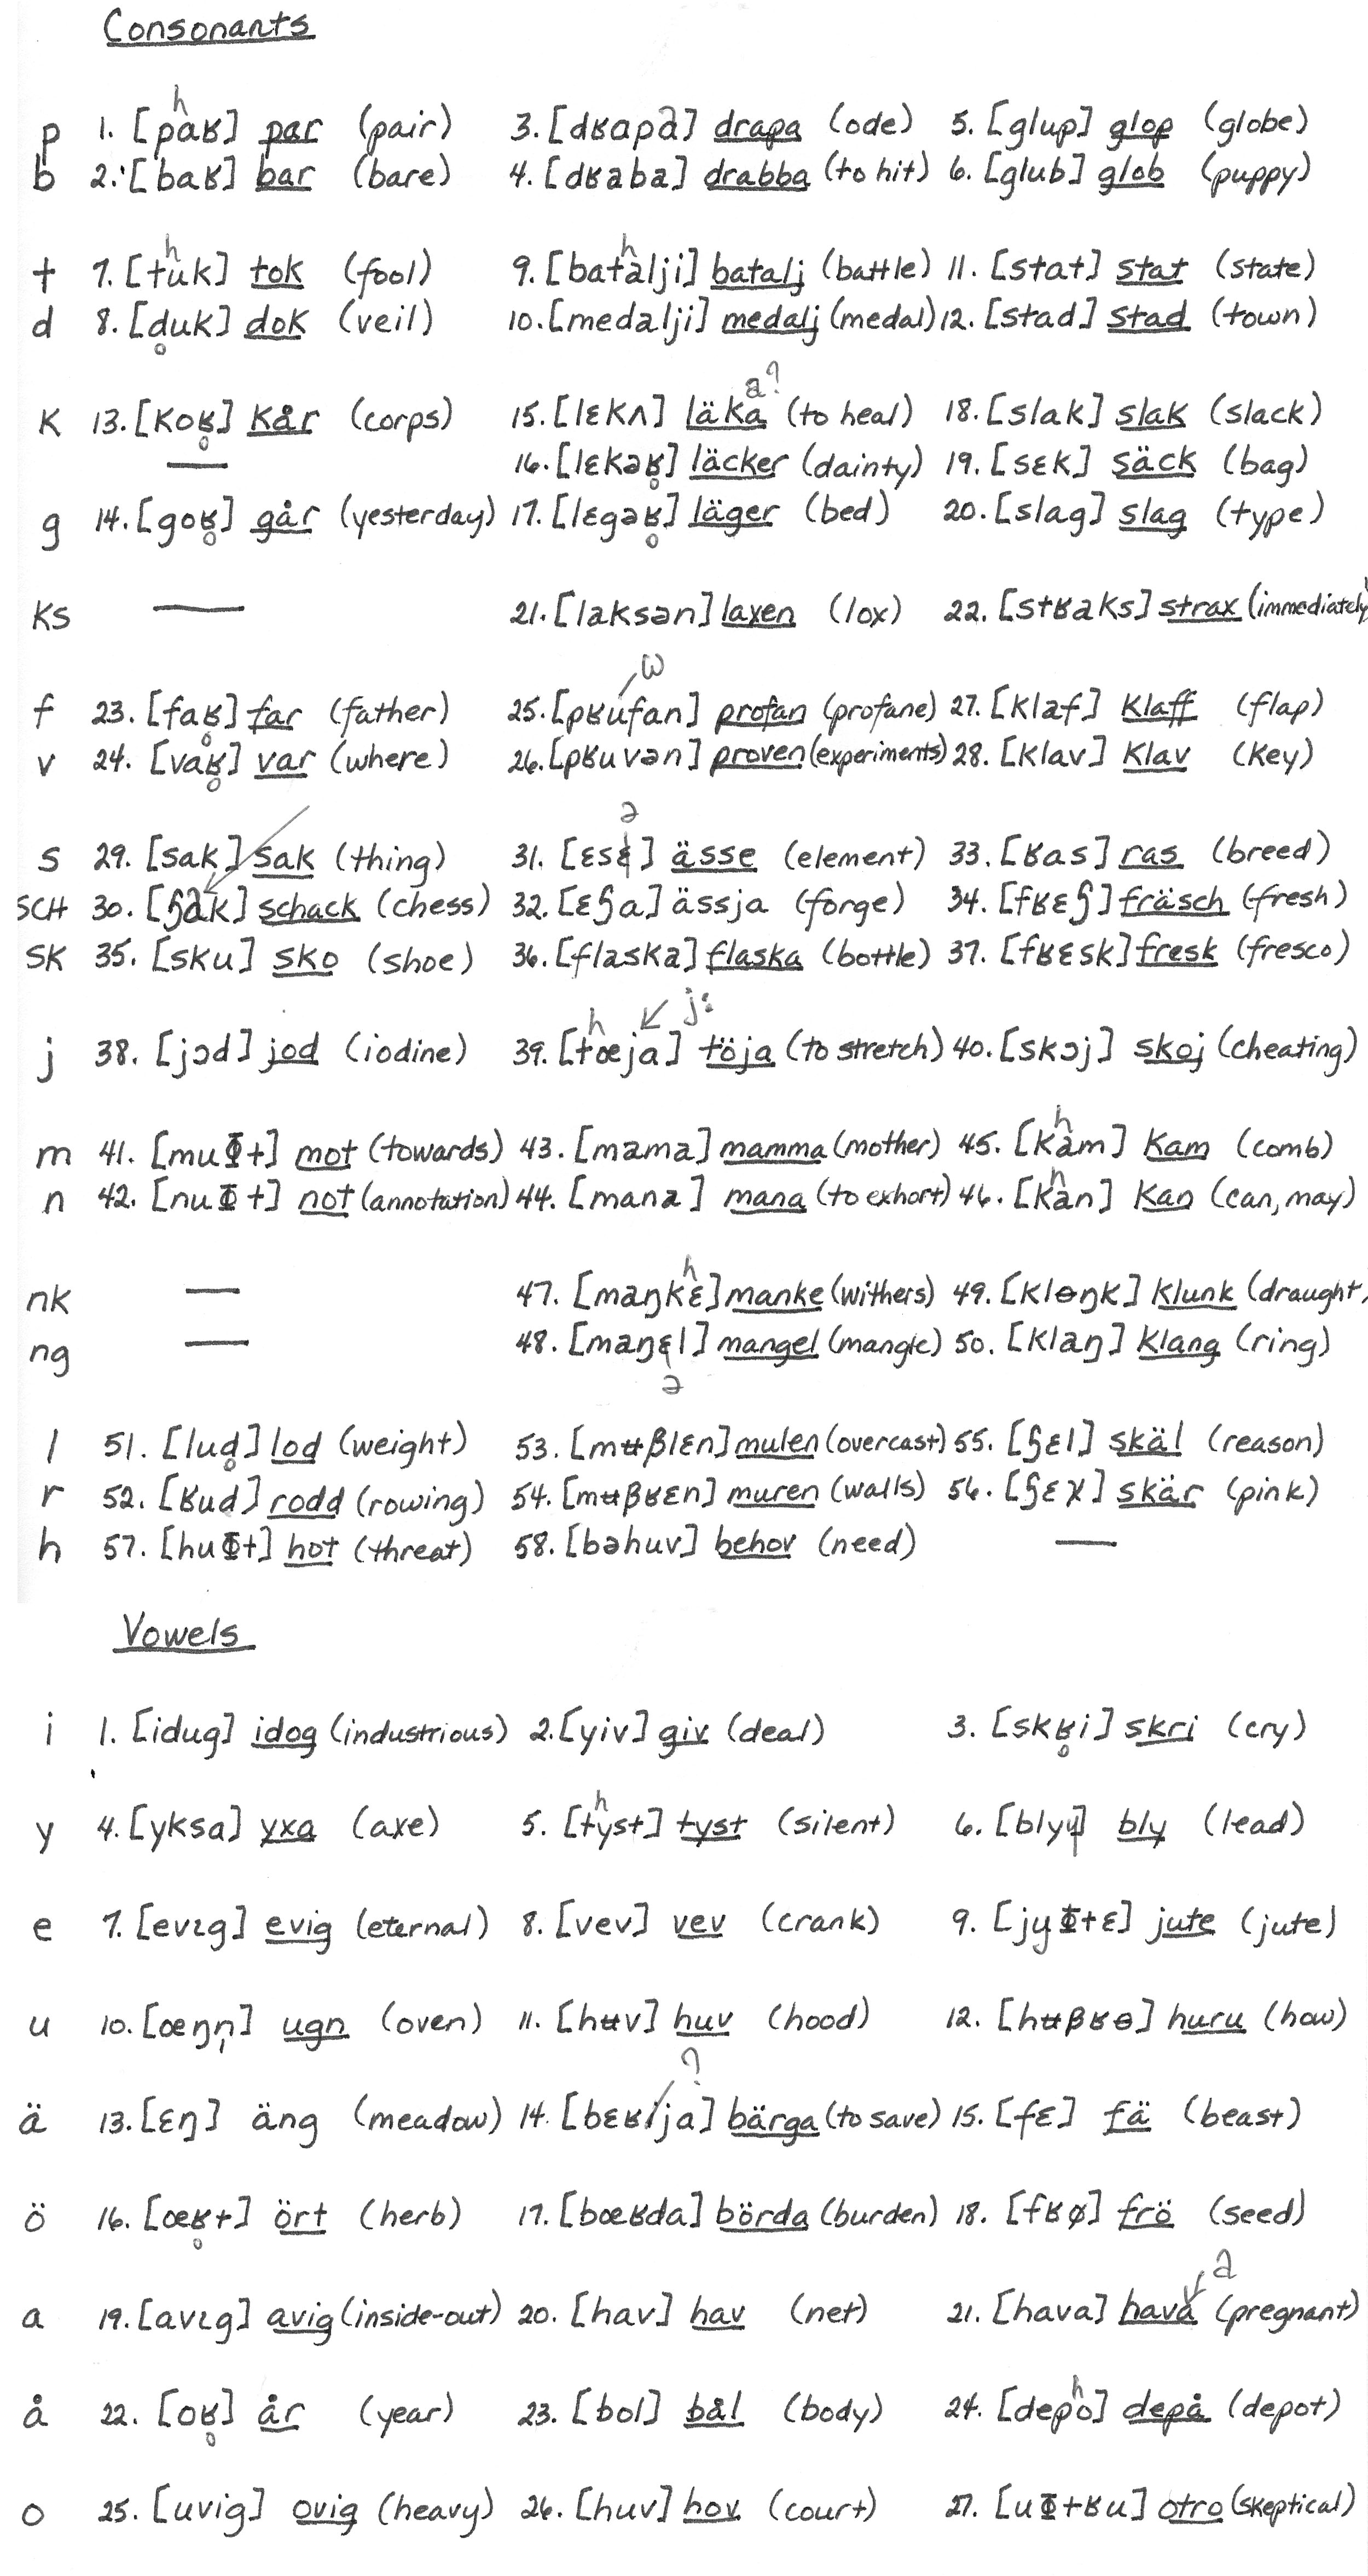 Consonants
p 1. [pʰaʁ] par (pair) 3. [dʁapa] drapa (ode) 5. [glup] glop (globe)
b 2. [baʁ] bar (bare) 4. [dʁaba] drabba (to hit) 6. [glub] glob (puppy)
t 7. [tʰuk] tok (fool) 9. [batʰalji] batalj (battle) 11. [stat] stat (state)
d 8. [d̥uk] dok (veil) 10. [medalji] medalj (medal) 12. [stad] stad (town)
K 13. [koʁ̥] kår (corps) 15. [lɛkʌ] läka a? (to heal) 18. [slak] slak (slack)
— 16. [lɛkəʁ̥] läcker (dainty) 19. [sɛk] säck (bag)
g 14. [goʁ̥] går (yesterday) 17. [lɛgəʁ̥] läger (bed) 20. [slag] slag (type)
Ks — 21. [laksən] laxen (lox) 22. [stʁaks] strax (immediately)
f 23. [faʁ̥] far (father) 25. [pʁufan] ω profan (profane) 27. [klaf] klaff (flap)
v 24. [vaʁ̥] var (where) 26. [pʁuvən] proven (experiments) 28. [klav] klav (key)
s 29. [sak] sak (thing) 31. [ɛsɛ] ə ässe (element) 33. [ʁas] ras (breed)
SCH 30. [ɧak] schack (chess) 32. [ɛɧa] ässja (forge) 34. [fʁɛɧ] fräsch (fresh)
SK 35. [sku] sko (shoe) 36. [flaska] flaska (bottle) 37. [fʁɛsk] fresk (fresco)
j 38. [jɔd] jod (iodine) 39. [tʰœja] j: töja (to stretch) 40. [skɔj] skoj (cheating)
m 41. [muɸt] mot (towards) 43. [mama] mamma (mother) 45. [kʰam] kam (comb)
n 42. [nuɸt] not (annotation) 44. [mana] mana (to exhort) 46. [kʰan] kan (can, may)
nk — 47. [maŋkʰɛ] manke (withers) 49. [klɵŋk] klunk (draught)
ng — 48. [maŋɛl] ə mangel (mangle) 50. [klaŋ] klang (ring)
l 51. [lud̥] lod (weight) 53. [mʉβlɛn] mulen (overcast) 55. [ɧɛl] skäl (reason)
r 52. [ʁud] rodd (rowing) 54. [mʉβʁɛn] muren (walls) 56. [ɧɛχ] skär (pink)
h 57. [huɸt] hot (threat) 58. [bəhuv] behov (need) —
Vowels
i 1. [idug] idog (industrious) 2. [yiv] giv (deal) 3. [skʁ̥i] skri (cry)
y 4. [yksa] yxa (axe) 5. [tʰyst] tyst (silent) 6. [blyɥ] bly (lead)
e 7. [evɩg] evig (eternal) 8. [vev] vev (crank) 9. [jyɸtɛ] jute (jute)
u 10. [œŋn̩] ugn (oven) 11. [hʉv] huv (hood) 12. [hʉβʁɵ] huru (how)
ä 13. [ɛŋ] äng (meadow) 14. [bɛʁja] ? bärga (to save) 15. [fɛ] fä (beast)
ö 16. [œʁ̥t] ört (herb) 17. [bœʁda] börda (burden) 18. [fʁø] frö (seed)
a 19. [avɩg] avig (inside-out) 20. [hav] hav (net) 21. [hava] hava a (pregnant)
å 22. [oʁ̥] år (year) 23. [bol] bål (body) 24. [depʰo] depå (depot)
o 25. [uvig] ovig (heavy) 26. [huv] hov (court) 27. [uɸtʁu] otro (skeptical)